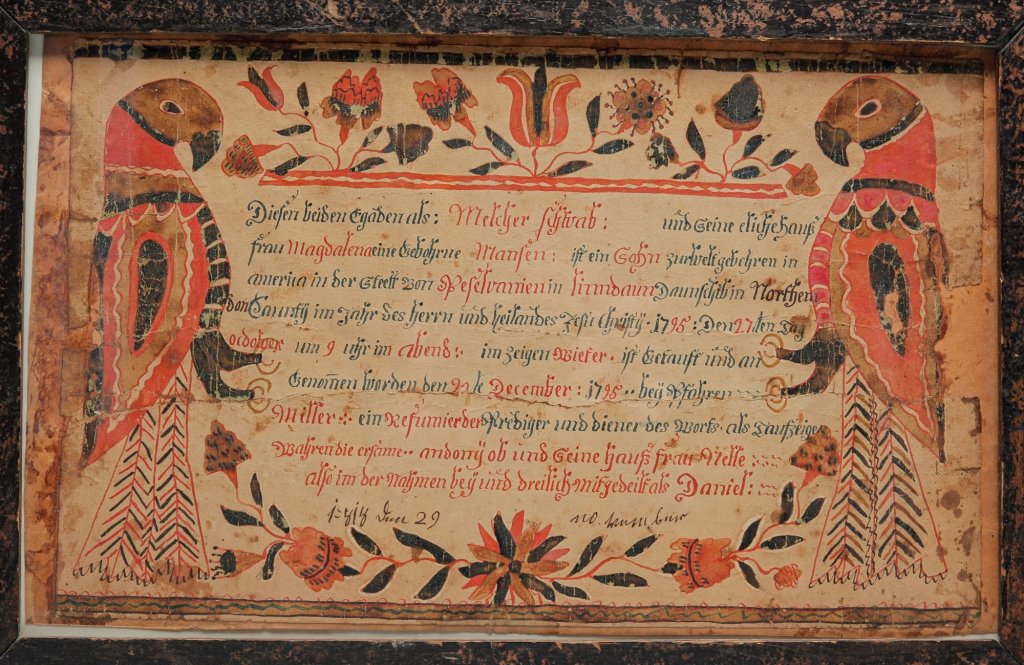 Diesen beiden Egaden als: Melcher schwab: und Seine eliche hauß
frau Magdalena eine Gebohrne Mansen: ist ein Sohn zur welt gebohren in
america in der Stett von Peselvanien in Daunschib in Northem
don Caunty im Jahr des herrn und heilandes Jesu Christy: 1795: Den 27ten Tag
ocdober um 9 uhr im abend: im zeigen wieser ist Getauft und an
Genom̄en worden den December: 1795 bey Pfahren
Miller: ein Refumierder Prediger und diener des Worts als Taufzeigen
Wahren die ersame andony ob und Seine hauß frau Nelle
also im der Nahmen bey und dreilich mitgedeilt als Daniel:
den 29 no.